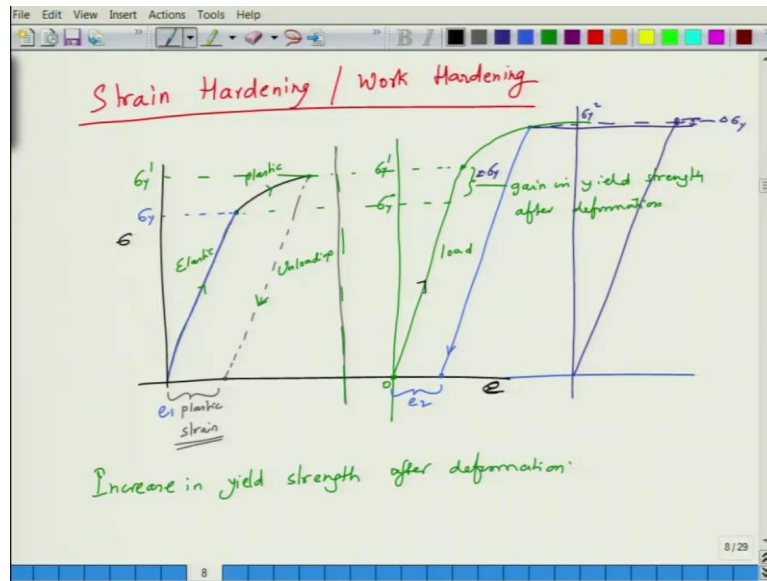 File Edit View Insert Actions Tools Help
Strain Hardening / Work Hardening
σy¹
plastic
σy
σ
Elastic
Unloading
e1
plastic
strain
σy¹
σy
gain in yield strength
after deformation
load
0
e2
e
σy²
Δσy
Increase in yield strength after deformation.
8/29
8